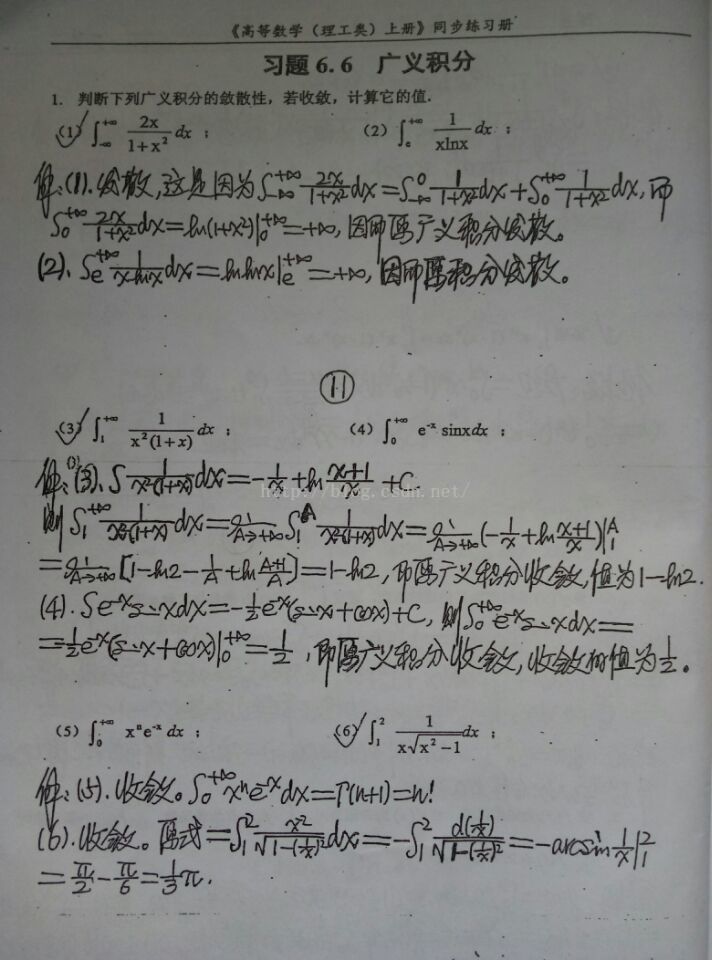 《高等数学（理工类）上册》同步练习册
习题 6.6 广义积分
1. 判断下列广义积分的敛散性，若收敛，计算它的值.
(1) ∫_{-∞}^{+∞} 2x/(1+x²) dx ； (2) ∫_e^{+∞} 1/(xlnx) dx ；
解:(1). 发散,这是因为∫_{-∞}^{+∞} 2x/(1+x²) dx=∫_{-∞}^0 1/(1+x²) dx+∫_0^{+∞} 1/(1+x²) dx, 而
∫_0^{+∞} 2x/(1+x²) dx=ln(1+x²)|_0^{+∞}=+∞, 因而原广义积分发散。
(2). ∫_e^{+∞} 1/(x·lnx) dx=ln lnx|_e^{+∞}=+∞, 因而原积分发散。
11
(3) ∫_1^{+∞} 1/(x²(1+x)) dx ； (4) ∫_0^{+∞} e^{-x} sinxdx ；
解:(3). ∫ 1/(x²(1+x)) dx=-1/x+ln (x+1)/x +C.
则∫_1^{+∞} 1/(x²(1+x)) dx=lim_{A→+∞} ∫_1^A 1/(x²(1+x)) dx=lim_{A→+∞} (-1/x+ln (x+1)/x)|_1^A
=lim_{A→+∞} [1-ln2-1/A+ln (A+1)/A]=1-ln2, 即原广义积分收敛,值为1-ln2.
(4). ∫e^{-x}sinxdx=-1/2 e^{-x}(sinx+cosx)+C, 则∫_0^{+∞} e^{-x}sinxdx=
=-1/2 e^{-x}(sinx+cosx)|_0^{+∞}=1/2, 即原广义积分收敛,收敛的值为1/2。
(5) ∫_0^{+∞} xⁿe^{-x} dx ； (6) ∫_1^2 1/(x√(x²-1)) dx ；
解:(5). 收敛。∫_0^{+∞} xⁿe^{-x}dx=Γ(n+1)=n!
(6). 收敛。原式=∫_1^2 x²/√(1-(1/x)²) dx=-∫_1^2 d(1/x)/√(1-(1/x)²)=-arcsin 1/x|_1^2
=π/2-π/6=1/3 π.
http://blog.csdn.net/